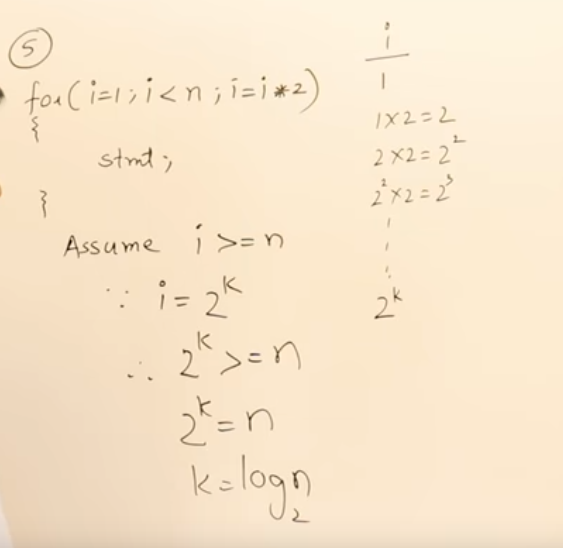 5
for(i=1; i<n; i=i*2)
{
stmt;
}
Assume i >= n
∵ i = 2^k
∴ 2^k >= n
2^k = n
k = log₂n
i
1
1×2=2
2×2=2²
2²×2=2³
2^k